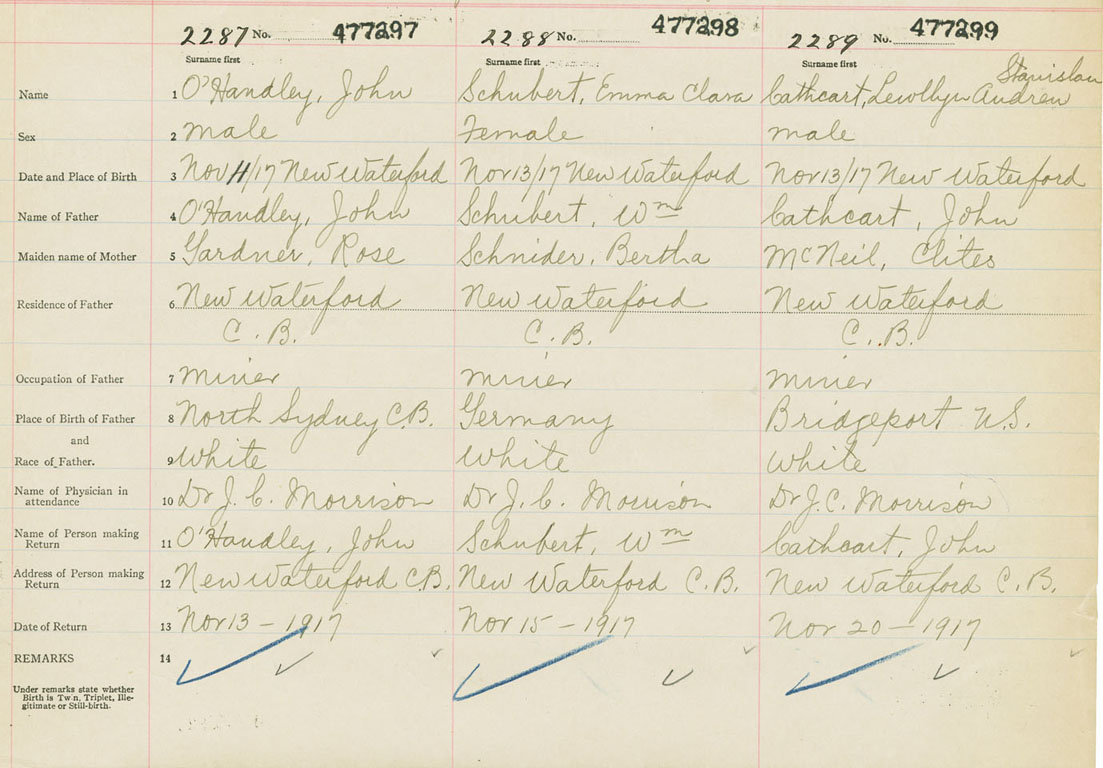 2287 No. 477297 2288 No. 477298 2289 No. 477299
Surname first Surname first Surname first
Stanislau
Name 1 O'Handley, John Schubert, Emma Clara Cathcart, Lewllyn Andrew
Sex 2 male Female male
Date and Place of Birth 3 Nov 11/17 New Waterford Nov 13/17 New Waterford Nov 13/17 New Waterford
Name of Father 4 O'Handley, John Schubert, Wm Cathcart, John
Maiden name of Mother 5 Gardner, Rose Schnider, Bertha McNeil, Clites
Residence of Father 6 New Waterford New Waterford New Waterford
C.B. C.B. C.B.
Occupation of Father 7 miner miner miner
Place of Birth of Father 8 North Sydney C.B. Germany Bridgeport U.S.
and
Race of Father. 9 White White White
Name of Physician in
attendance 10 Dr J. C. Morrison Dr J. C. Morrison Dr J. C. Morrison
Name of Person making
Return 11 O'Handley, John Schubert, Wm Cathcart, John
Address of Person making
Return 12 New Waterford C.B. New Waterford C.B. New Waterford C.B.
Date of Return 13 Nov 13 - 1917 Nov 15 - 1917 Nov 20 - 1917
REMARKS 14
Under remarks state whether
Birth is Twin, Triplet, Ille-
gitimate or Still-birth.